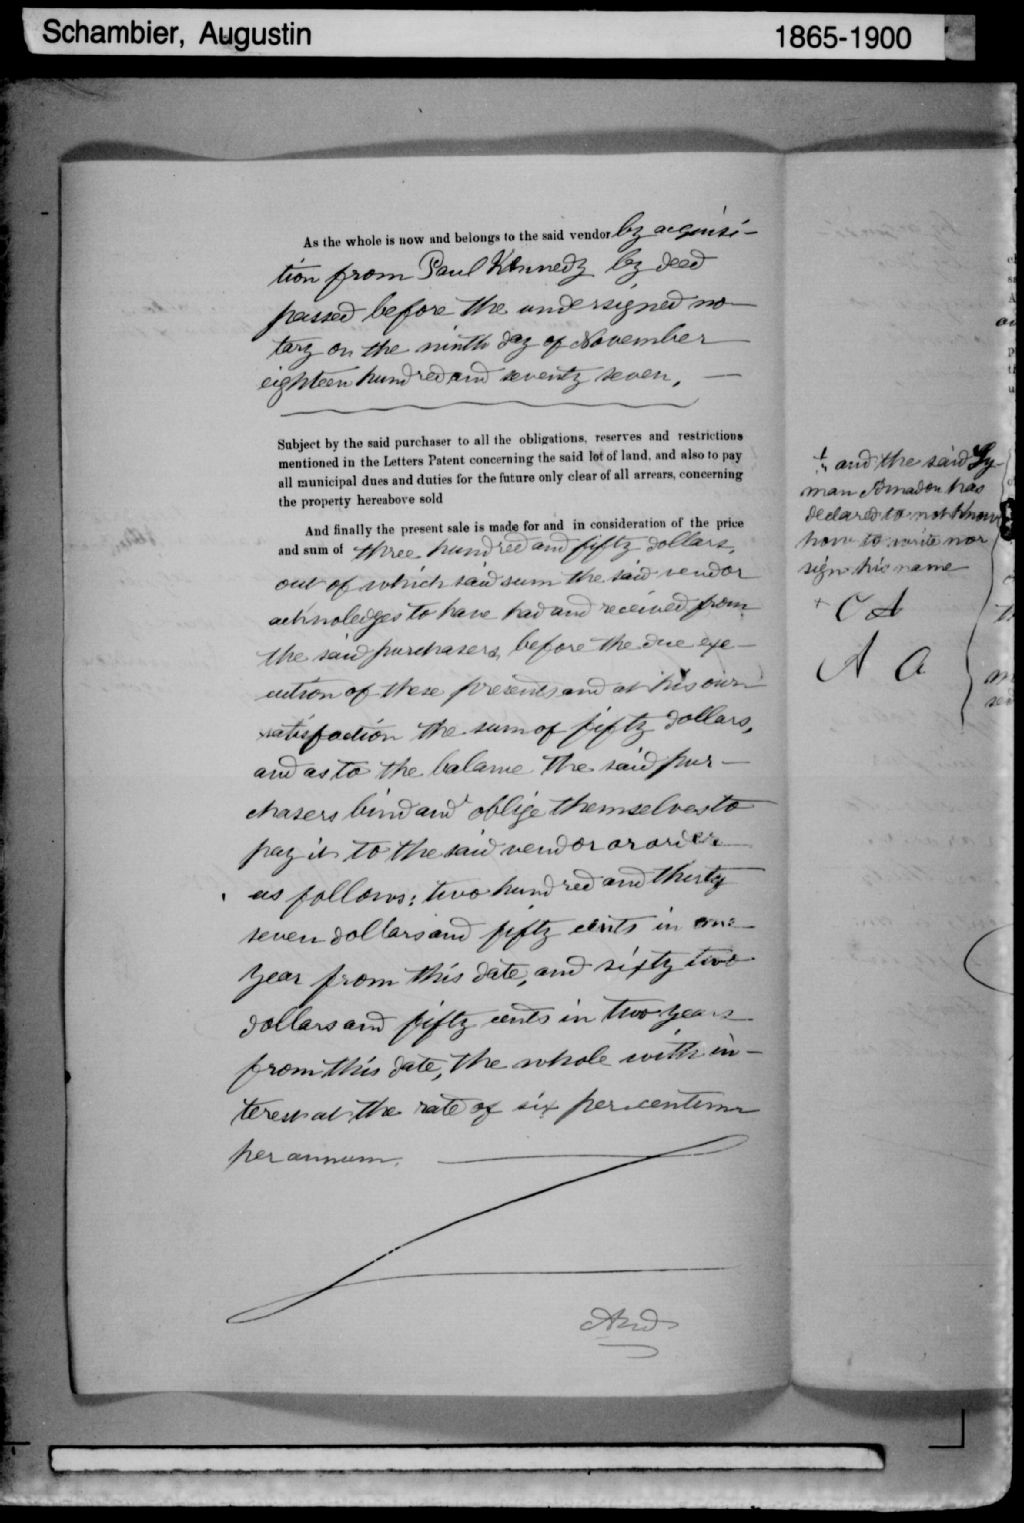 Schambier, Augustin 1865-1900
As the whole is now and belongs to the said vendor by acquisi-
tion from Paul Kennedy by deed
passed before the undersigned no-
tary on the ninth day of November
eighteen hundred and seventy seven,
Subject by the said purchaser to all the obligations, reserves and restrictions
mentioned in the Letters Patent concerning the said lot of land, and also to pay
all municipal dues and duties for the future only clear of all arrears, concerning
the property hereabove sold
And finally the present sale is made for and in consideration of the price
and sum of three hundred and fifty dollars,
out of which said sum the said vendor
acknoledges to have had and received from
the said purchasers, before the due exe-
cution of these presents and at his own
satisfaction the sum of fifty dollars,
and as to the balance the said pur-
chasers bind and oblige themselves to
pay it to the said vendor or order
as follows: two hundred and thirty
seven dollars and fifty cents in one
year from this date, and sixty two
dollars and fifty cents in two years
from this date, the whole with in-
terest at the rate of six per centum
per annum.
And
and the said Ly-
man Amadon has
declared to not know
how to write nor
sign his name
+ C A
A A